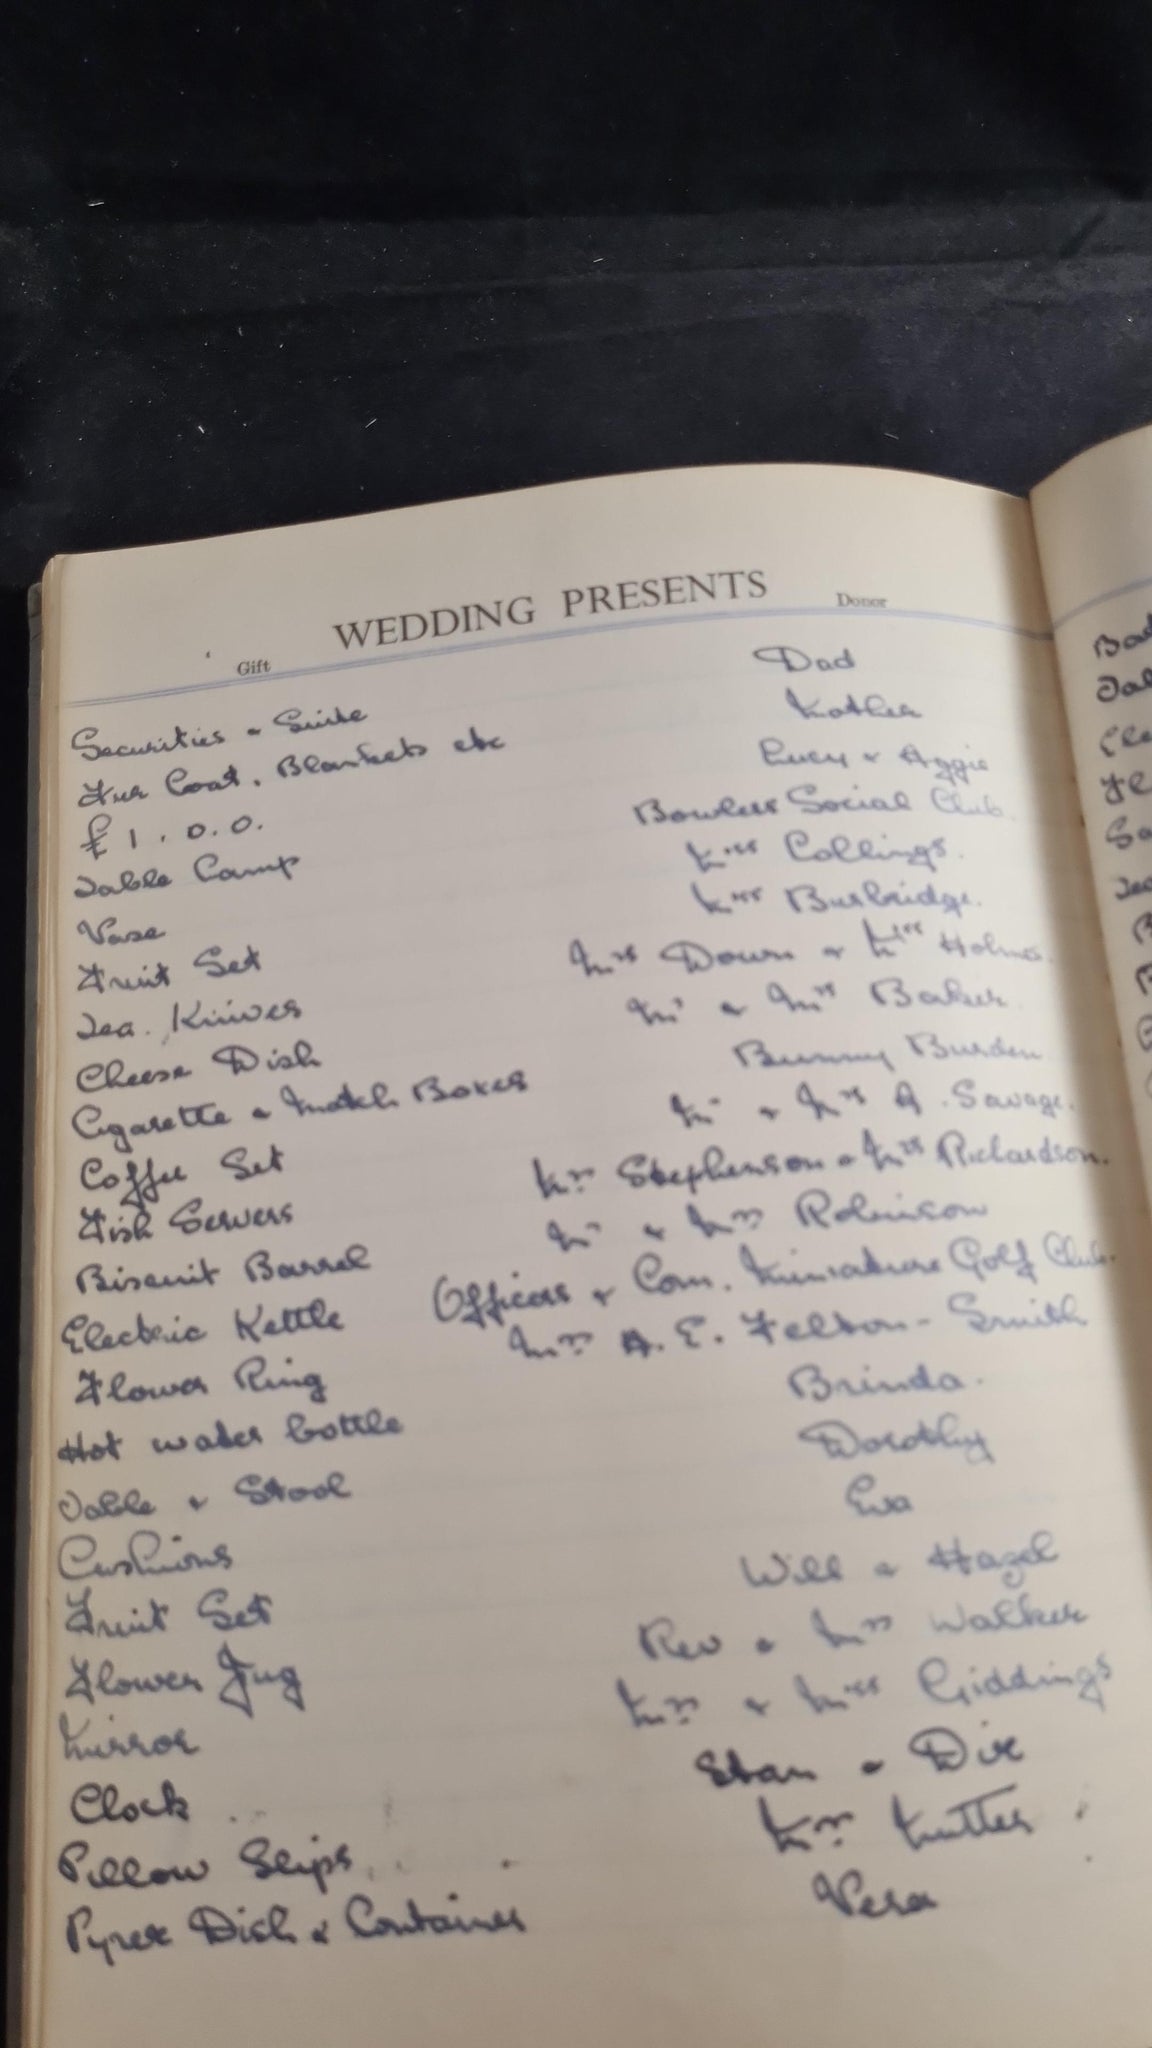 WEDDING PRESENTS
Gift Donor
Securities & Suite Dad
Fur Coat. Blankets etc Mother
£1.0.0. Lucy & Aggie
Table Lamp Bowless Social Club.
Vase Miss Collings.
Fruit Set Miss Burbridge.
Tea. Knives Mrs Down & Miss Holmes.
Cheese Dish Mr & Mrs Baker.
Cigarette & Match Boxes Bunny Burden
Coffee Set Mr & Mrs A. Savage.
Fish Servers Mrs Stephenson & Mrs Richardson.
Biscuit Barrel Mr & Mrs Robinson
Electric Kettle Officers & Com. Miniature Golf Club.
Flower Ring Mrs A. E. Felton-Smith
Hot water bottle Brinda.
Table & Stool Dorothy
Cushions Eva
Fruit Set Will & Hazel
Flower Jug Rev & Mrs Walker
Mirror Mrs & Miss Giddings
Clock Stan & Dix
Pillow Slips Mrs Mutter
Pyrex Dish & Container Vera